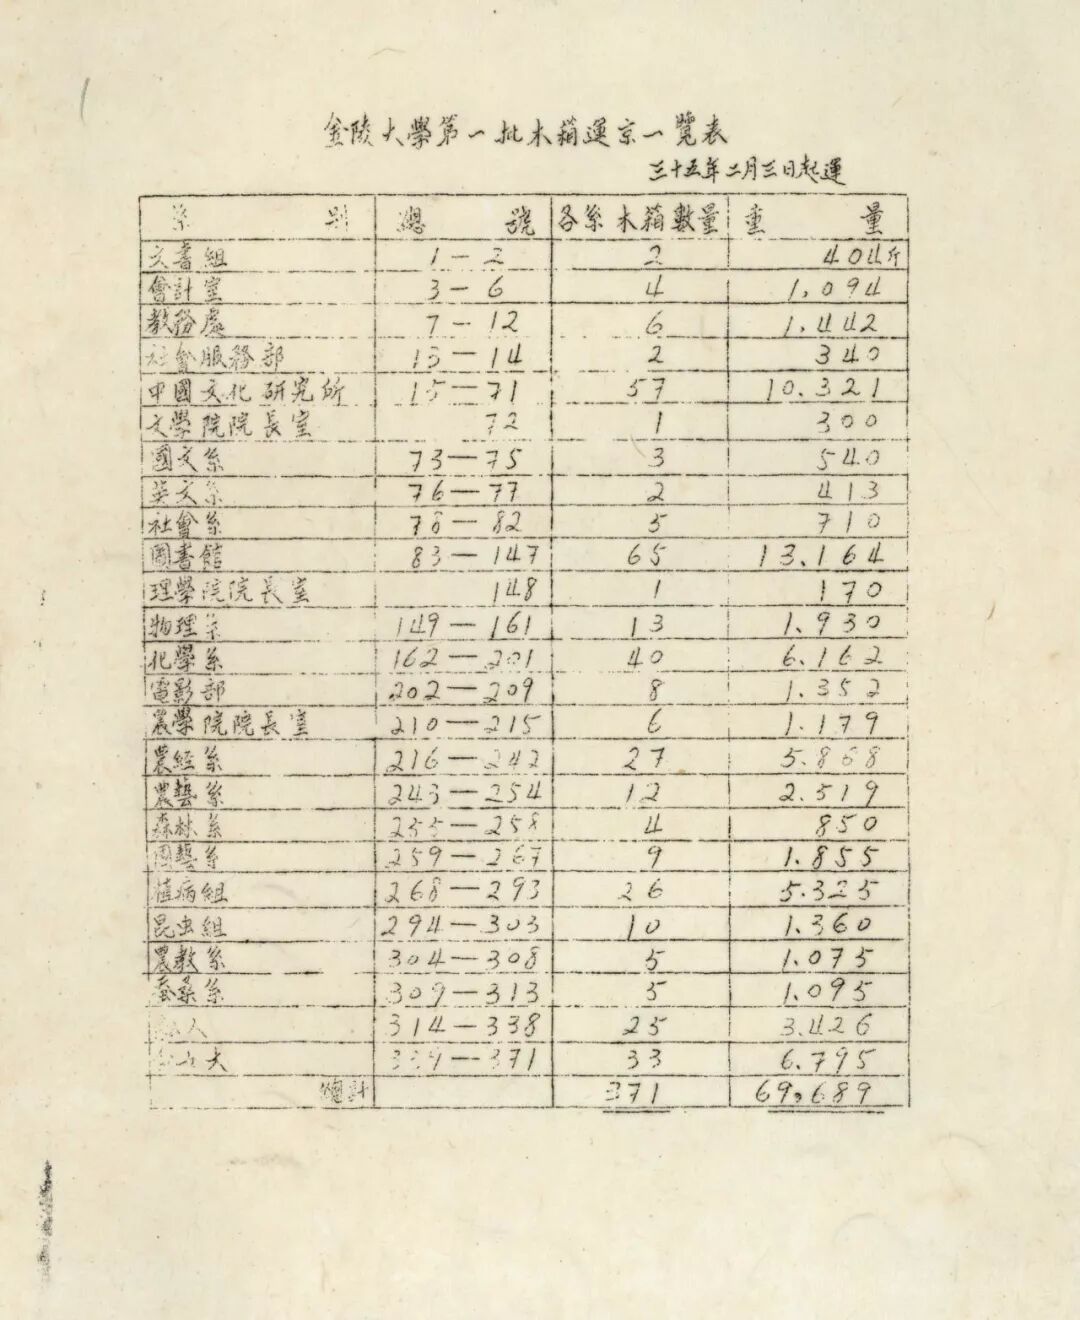 金陵大學第一批木箱運京一覽表
三十五年二月三日起運
系別 總號 各系木箱數量 重量
文書組 1—2 2 404斤
會計室 3—6 4 1,094
教務處 7—12 6 1.442
社會服務部 13—14 2 340
中國文化研究所 15—71 57 10.321
文學院院長室 72 1 300
國文系 73—75 3 540
英文系 76—77 2 413
社會系 78—82 5 710
圖書館 83—147 65 13.164
理學院院長室 148 1 170
物理系 149—161 13 1.930
化學系 162—201 40 6.162
電影部 202—209 8 1.352
農學院院長室 210—215 6 1.179
農經系 216—242 27 5.868
農藝系 243—254 12 2.519
森林系 255—258 4 850
園藝系 259—267 9 1.855
植病組 268—293 26 5.325
昆虫組 294—303 10 1.360
農教系 304—308 5 1.075
蚕桑系 309—313 5 1.095
人 314—338 25 3.426
大 339—371 33 6.795
總計 371 69,689